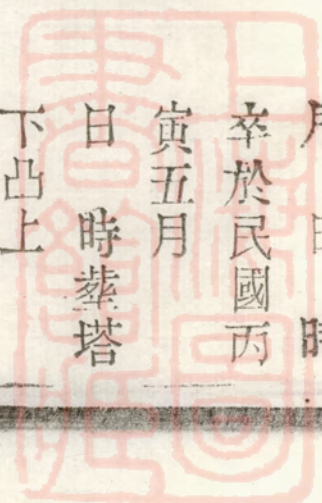 月 日 時
卒於民國丙
寅五月
日 時塟塔
下凸上